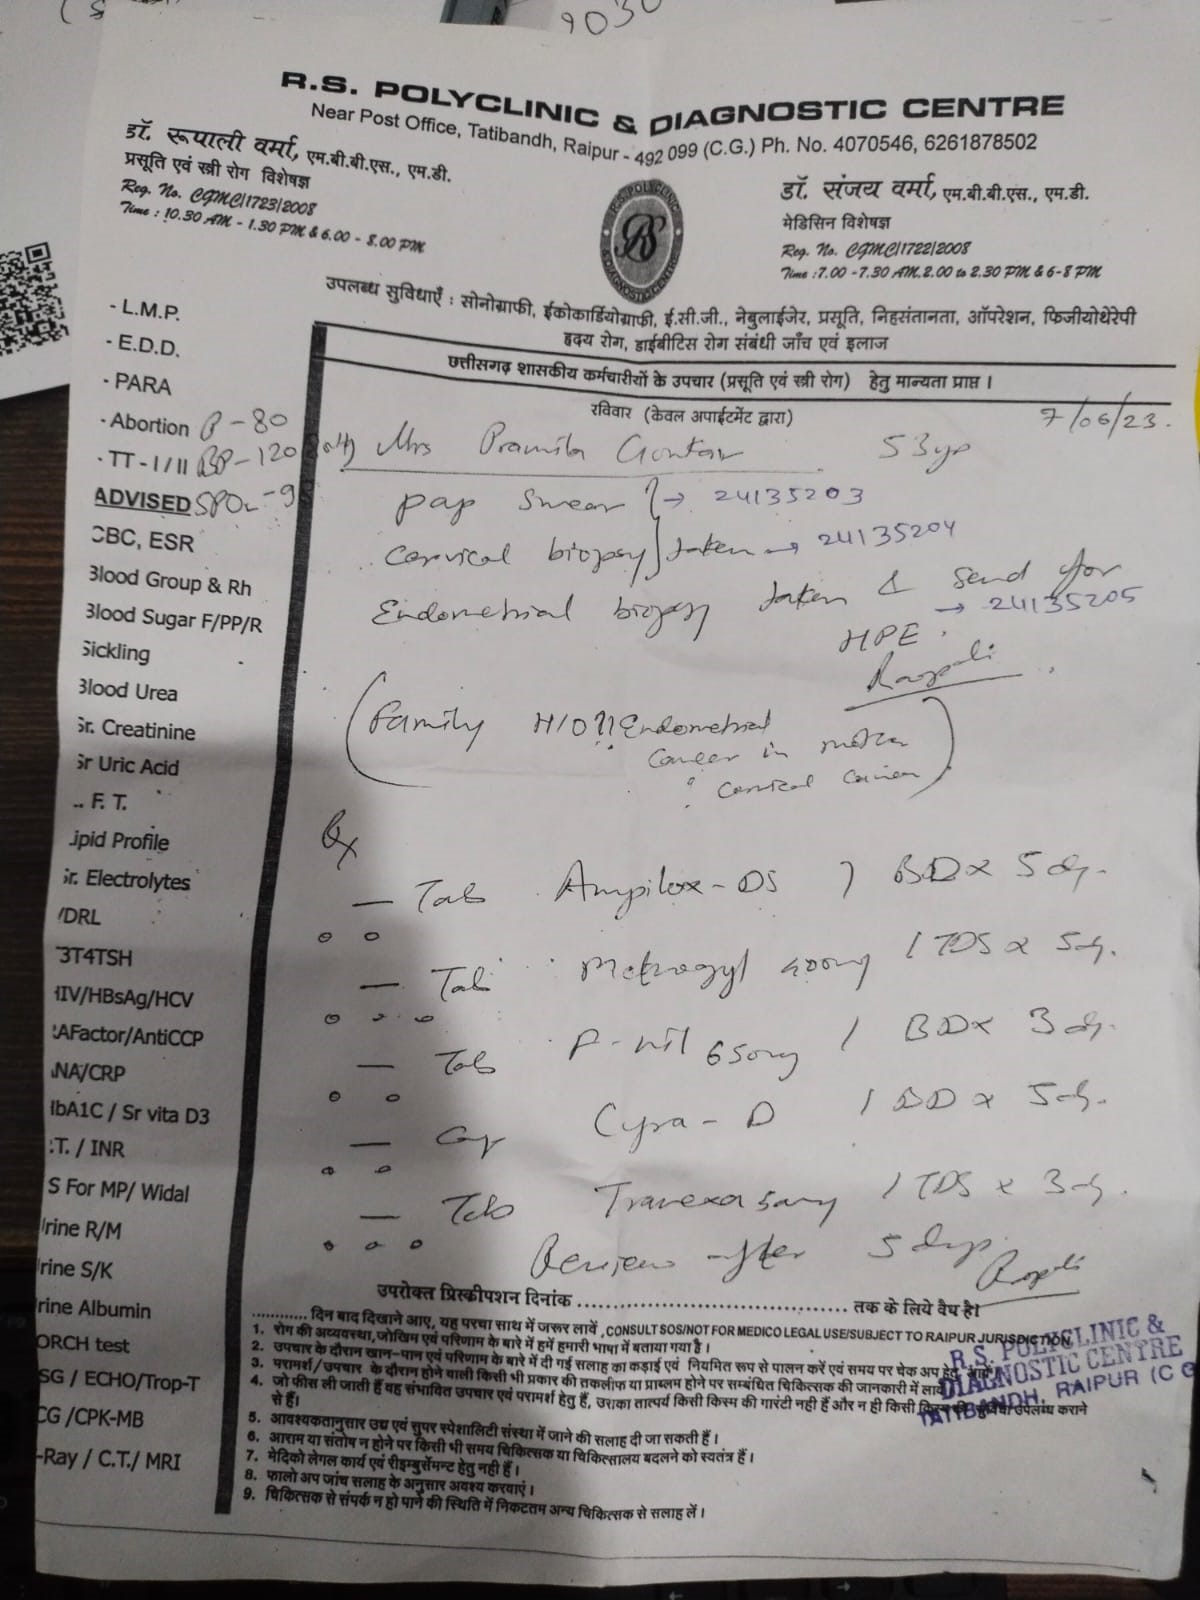 9030
R.S. POLYCLINIC & DIAGNOSTIC CENTRE
Near Post Office, Tatibandh, Raipur - 492 099 (C.G.) Ph. No. 4070546, 6261878502
डॉ. रूपाली वर्मा, एम.बी.बी.एस., एम.डी.
प्रसूति एवं स्त्री रोग विशेषज्ञ
Reg. No. CGMC/1723/2008
Time : 10.30 AM - 1.30 PM & 6.00 - 8.00 PM
डॉ. संजय वर्मा, एम.बी.बी.एस., एम.डी.
मेडिसिन विशेषज्ञ
Reg. No. CGMC/1722/2008
Time : 7.00 - 7.30 AM, 2.00 to 2.30 PM & 6-8 PM
R.S. POLYCLINIC & DIAGNOSTIC CENTRE
RS
उपलब्ध सुविधाएँ : सोनोग्राफी, ईकोकार्डियोग्राफी, ई.सी.जी., नेबुलाईजेर, प्रसूति, निहसंतानता, ऑपरेशन, फिजीयोथेरेपी
हृदय रोग, डाईबीटिस रोग संबंधी जाँच एवं इलाज
छत्तीसगढ़ शासकीय कर्मचारीयों के उपचार (प्रसूति एवं स्त्री रोग) हेतु मान्यता प्राप्त ।
रविवार (केवल अपाईटमेंट द्वारा)
7/06/23.
- L.M.P.
- E.D.D.
- PARA
- Abortion P - 80
- TT - I / II BP - 120
ADVISED SPO2 - 9
CBC, ESR
Blood Group & Rh
Blood Sugar F/PP/R
Sickling
Blood Urea
Sr. Creatinine
Sr Uric Acid
F. T.
Lipid Profile
Sr. Electrolytes
VDRL
T3T4TSH
HIV/HBsAg/HCV
RAFactor/AntiCCP
ANA/CRP
HbA1C / Sr vita D3
.T. / INR
S For MP/ Widal
Urine R/M
Urine S/K
Urine Albumin
TORCH test
SG / ECHO/Trop-T
CG /CPK-MB
-Ray / C.T./ MRI
Mrs Pramila 53yr
pap smear → 24135203
Cervical biopsy taken → 24135204
Endometrial biopsy taken & send for
→ 24135205
HPE.
Rupali
(Family H/O ?? Endometrial
cancer in mother
? cervical cancer)
Rx
— Tab Ampilox-DS 1 BD x 5 dy.
— Tab Metrogyl 400mg 1 TDS x 5 dy.
— Tab P-nil 650mg 1 BD x 3 dy.
— Cap Cyra-D 1 BD x 5 dy.
— Tab Tranexa 500mg 1 TDS x 3 dy.
Review after 5 days.
Rupali
उपरोक्त प्रिस्कीपशन दिनांक .................................... तक के लिये वैध है।
............ दिन बाद दिखाने आए, यह परचा साथ में जरूर लावें, CONSULT SOS/NOT FOR MEDICO LEGAL USE/SUBJECT TO RAIPUR JURISDICTION
1. रोग की अव्यवस्था, जोखिम एवं परिणाम के बारे में हमें हमारी भाषा में बताया गया है।
2. उपचार के दौरान खान-पान एवं परिणाम के बारे में दी गई सलाह का कड़ाई एवं नियमित रूप से पालन करें एवं समय पर चेक अप हेतु
3. परामर्श/उपचार के दौरान होने वाली किसी भी प्रकार की तकलीफ या प्राब्लम होने पर सम्बंधित चिकित्सक की जानकारी में लावें
4. जो फीस ली जाती हैं वह संभावित उपचार एवं परामर्श हेतु हैं, उसका तात्पर्य किसी किस्म की गारंटी नही हैं और न ही किसी उपलब्ध कराने
से हैं।
5. आवश्यकतानुसार उच्च एवं सुपर स्पेशालिटी संस्था में जाने की सलाह दी जा सकती हैं।
6. आराम या संतोष न होने पर किसी भी समय चिकित्सक या चिकित्सालय बदलने को स्वतंत्र हैं।
7. मेदिको लेगल कार्य एवं रीइम्बुर्सेमन्ट हेतु नही हैं।
8. फालो अप जांच सलाह के अनुसार अवश्य करवाएं।
9. चिकित्सक से संपर्क न हो पाने की स्थिति में निकटतम अन्य चिकित्सक से सलाह लें।
R.S. POLYCLINIC &
DIAGNOSTIC CENTRE
TATIBANDH, RAIPUR (C G